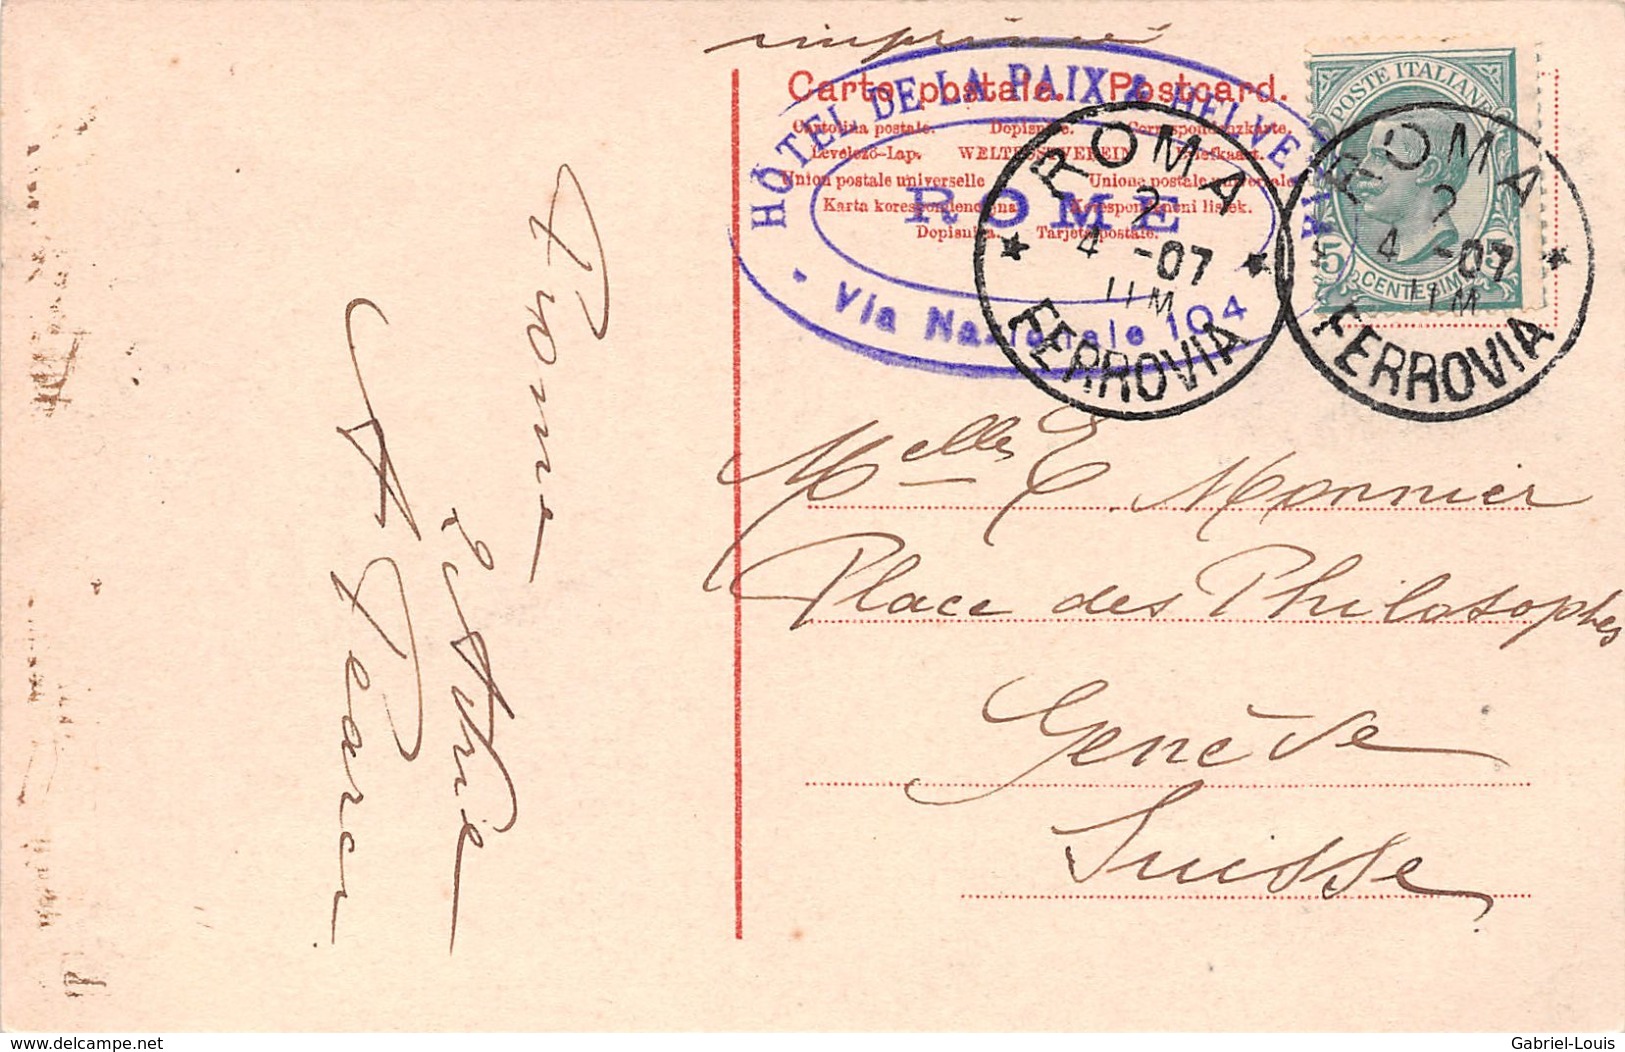 imprimé
Carte postale. Postcard.
Cartolina postale. Dopisnice. Correspondenzkarte.
Levelező-Lap. WELTPOSTVEREIN Briefkaart.
Union postale universelle Unione postale universale
Karta korespondencyjna Korespondenčni listek.
Dopisnica. Tarjeta postale.
HÔTEL DE LA PAIX & HELVETIA
ROME
Via Nazionale 104
POSTE ITALIANE
5 CENTESIMI 5
ROMA
2
4 -07
11M
FERROVIA
ROMA
2
4 -07
11M
FERROVIA
Melles E. Monnier
Place des Philosophes
Genève
Suisse
Rome
2
A
delcampe.net
Gabriel-Louis